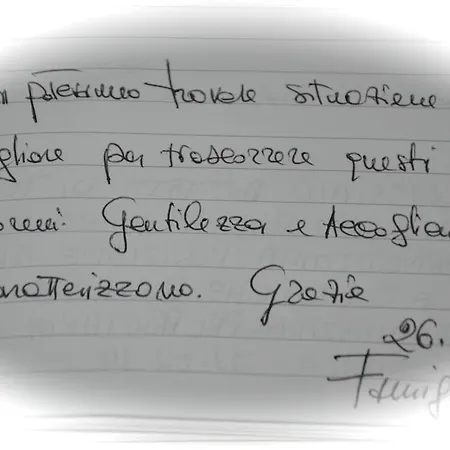 potessimo trovare situazione
gliore per trascorrere questi
orni. Gentilezza e Accoglien
ratterizzano. Grazie
26.
Famig